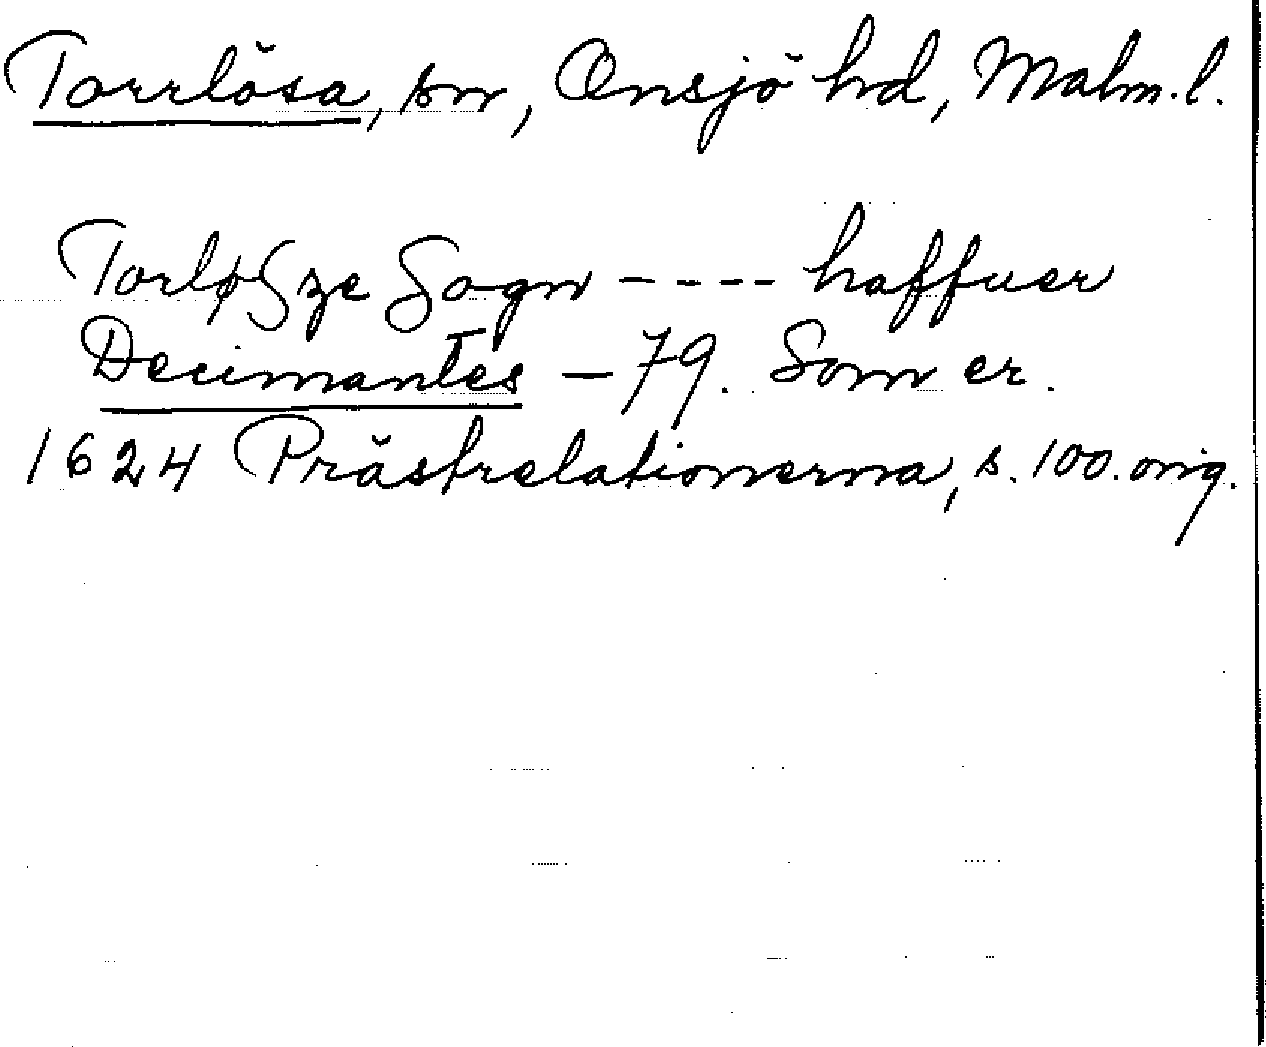 Torrlösa, sn, Onsjö hd, Malm. l.
TorløSze Sogn ---- haffuer
Decimantes – 79. Som er.
1624 Prästrelationerna, s. 100. orig.